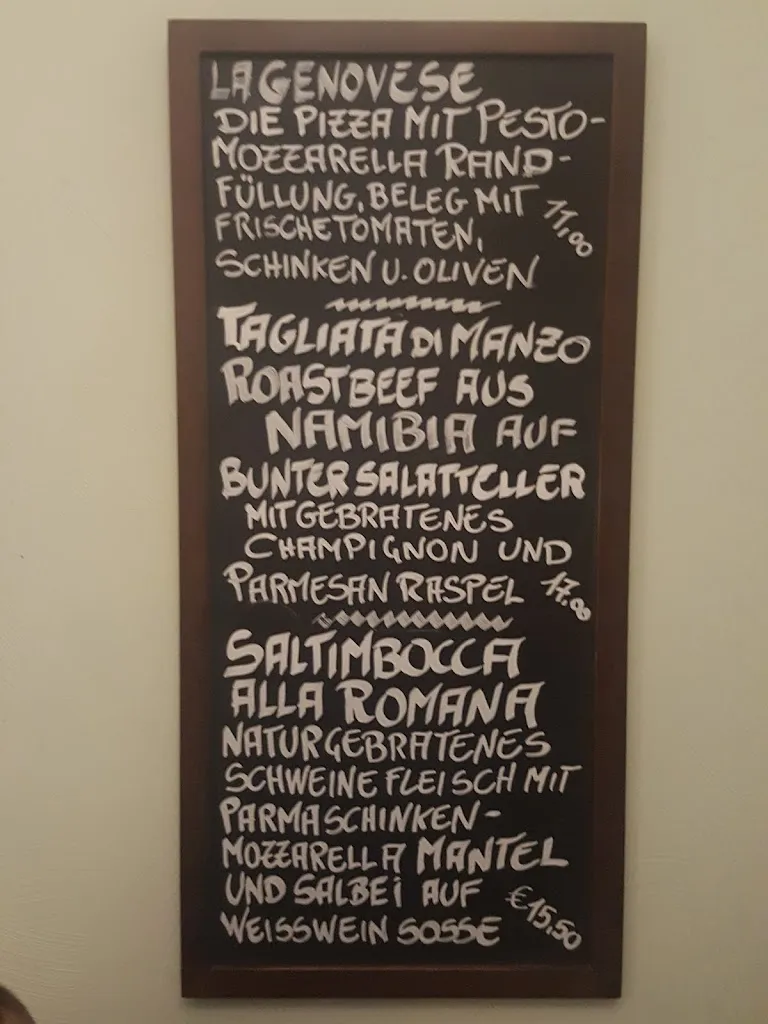 LA GENOVESE
DIE PIZZA MIT PESTO-
MOZZARELLA RAND-
FÜLLUNG, BELEG MIT
FRISCHE TOMATEN,
11,00
SCHINKEN U. OLIVEN
TAGLIATA DI MANZO
ROASTBEEF AUS
NAMIBIA AUF
BUNTER SALATTELLER
MIT GEBRATENES
CHAMPIGNON UND
PARMESAN RASPEL
17.00
SALTIMBOCCA
ALLA ROMANA
NATUR GEBRATENES
SCHWEINEFLEISCH MIT
PARMASCHINKEN-
MOZZARELLA MANTEL
UND SALBEi AUF
€15,50
WEISSWEIN SOSSE